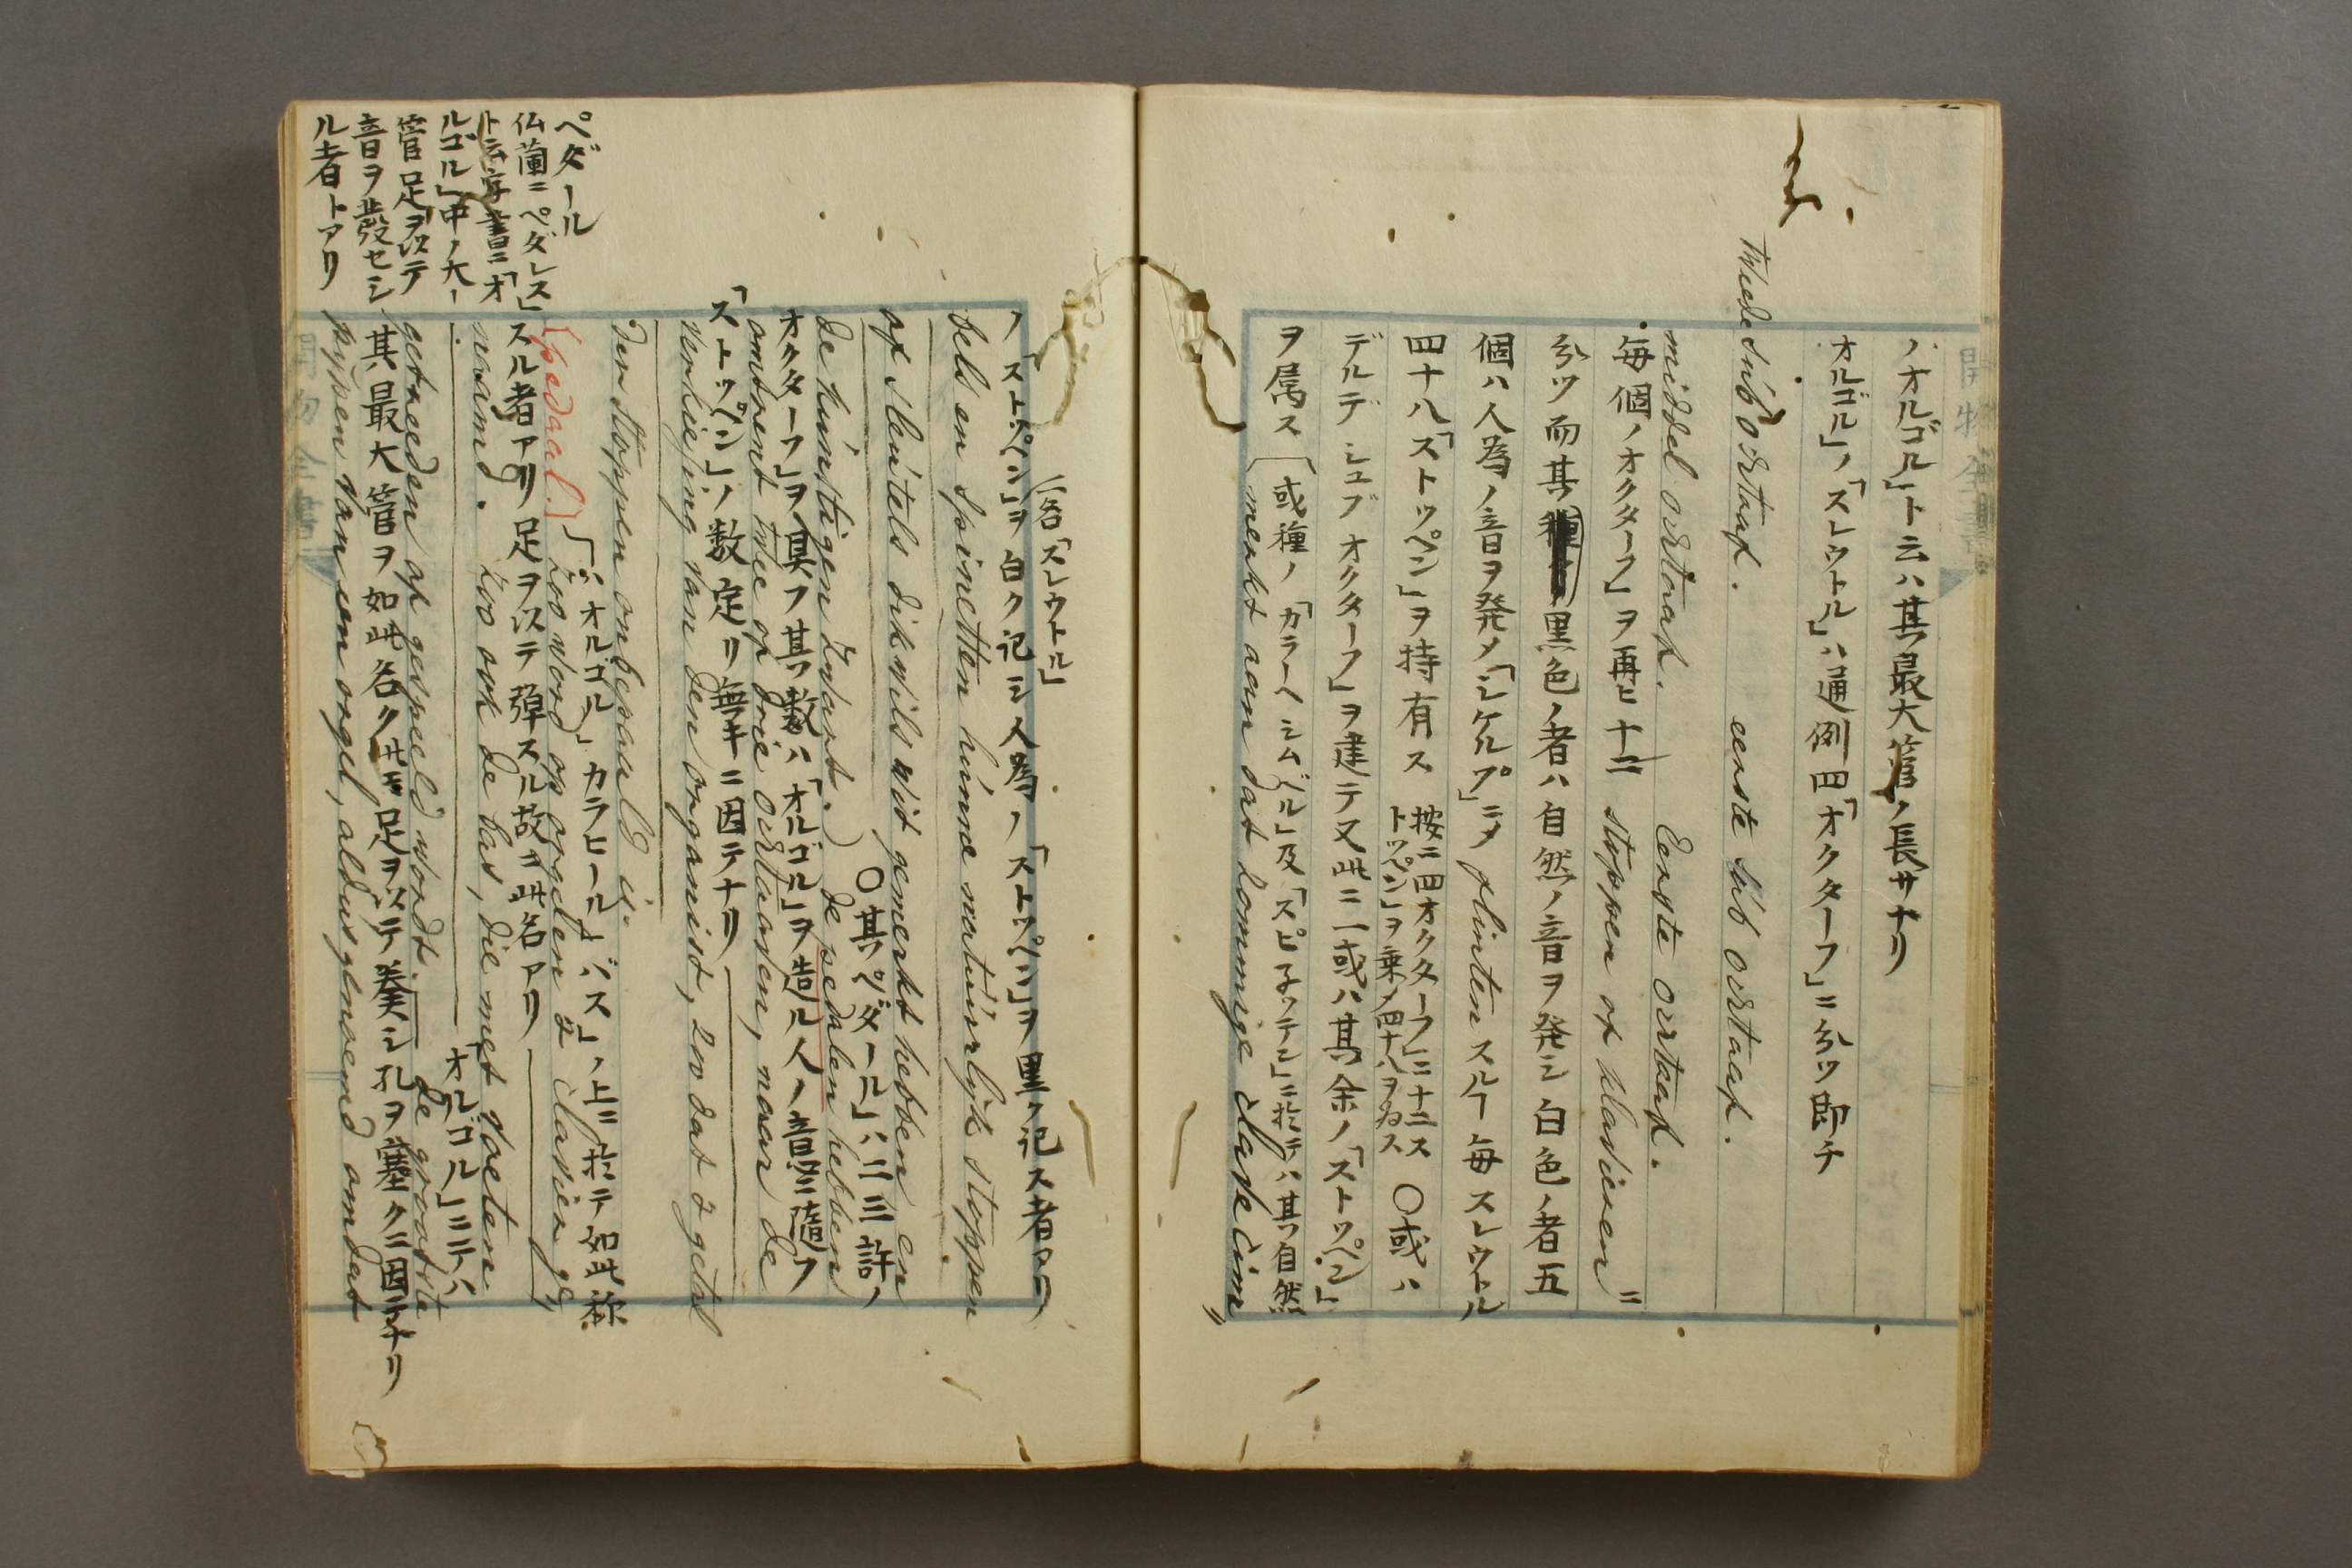 ノオルゴル」ト云ハ其最大管ノ長サナリ
オルゴル」ノ「スレウトル」ハ通例四「オクターフ」ニ分ツ即チ
twede sub octaaf. eerste sub octaaf.
middel octaaf. Eerste octaaf.
毎個ノオクターフ」ヲ再ヒ十二 stoppen of klavieren ニ
分ツ而其黒色ノ者ハ自然ノ音ヲ発シ白色ノ者五
個ハ人為ノ音ヲ発メ「シケルプ」ニメ plinten スルヿ毎スレウトル
四十八「ストッペン」ヲ持有ス 按ニ四オクターフ」ニ十二ス
トッペン」ヲ乗メ四十八ヲ為ス 〇或ハ
デルデシュブオクターフ」ヲ建テ又此ニ一或ハ其余ノ「ストッペン」
ヲ属ス 或種ノ「カラーヘシムベル」及「スピ子ッテン」ニ於テハ其自然
merkt aan dat sommige clavecim〃
一名「スレウトル」
ノ「ストッペン」ヲ白ク記シ人為ノ「ストッペン」ヲ黒ク記ス者アリ
bels en spinetten hunne natuurlyk stoppen
of sleutels dikwils wit gemerkt hebben, en
de kunstigen zwart.) 〇其ペダール」ハ二三許ノ
de pedalen hebben
オクターフ」ヲ具フ其数ハ「オルゴル」ヲ造ル人ノ意ニ隨フ
omtrent twe of drie octaaven, naar de
verkiezing van den organist, zoo dat 't getal
「ストッペン」ノ数定リ無キニ因テナリ
der stoppen onbepaald is.
[pedaal.] 「オルゴル」カラヒール」バス」ノ上ニ於テ如此称
zoo word op orgelen 't clavier ge〃
スル者アリ足ヲ以テ弾スル故ニ此名アリ
naamd. zoo ook de bas, die met voeten
「オルゴル」ニテハ
getreeden of gespeeld wordt. de grootste
其最大管ヲ如此名ク此モ足ヲ以テ奏シ孔ヲ塞クニ因テナリ
pypen van een orgel, aldus genoemd omdat
ペダール
仏蘭ニペダレス」
ト云字書ニ「オ
ルゴル」中ノ大
管足ヲ以テ
音ヲ發セシ
ル者トアリ